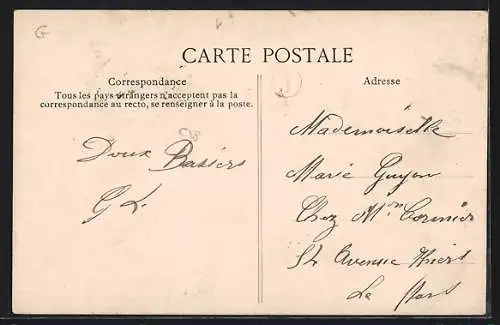 G
CARTE POSTALE
Correspondance
Tous les pays étrangers n'acceptent pas la
correspondance au recto, se renseigner à la poste.
Adresse
Doux Baisers
G L.
Mademoiselle
Marie Guyon
Chez Mon Cormier
54 Avenue Thiers
Le Mans